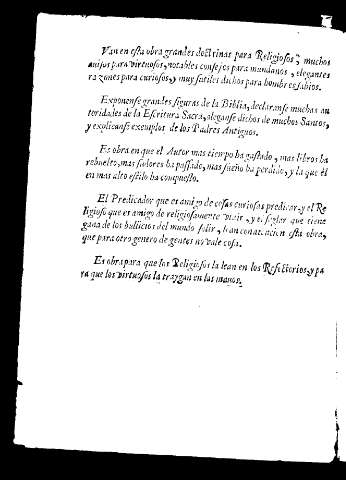 Van en esta obra grandes doctrinas para Religiosos, muchos
auisos para virtuosos, notables consejos para mundanos, elegantes
razones para curiosos, y muy sutiles dichos para hombres sabios.
Exponense grandes figuras de la Biblia, declaranse muchas au
toridades de la Escritura Sacra, aleganse dichos de muchos Santos,
y explicanse exemplos de los Padres Antiguos.
Es obra en que el Autor mas tiempo ha gastado, mas libros ha
rebuelto, mas sudores ha passado, mas sueño ha perdido, y la que èl
en mas alto estilo ha compuesto.
El Predicador que es amigo de cosas curiosas predicar, y el Re
ligioso que es amigo de religiosamente viuir, y el seglar que tiene
gana de los bullicios del mundo salir, lean con atencion esta obra,
que para otro genero de gentes no vale cosa.
Es obra para que los Religiosos la lean en los Refectorios, y pa
ra que los virtuosos la traygan en las manos.